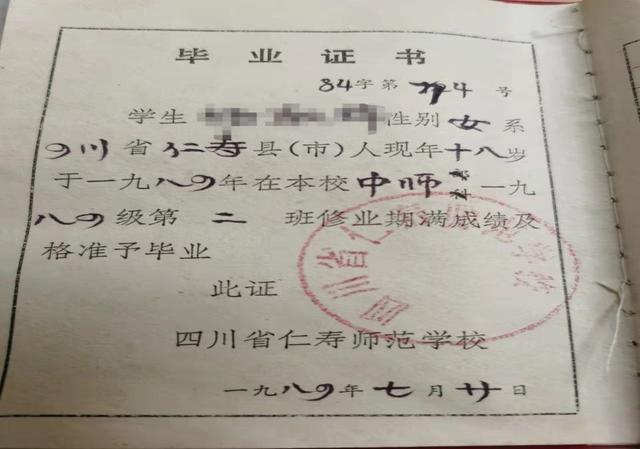 毕业证书
84字第794号
学生 性别女系
四川省仁寿县(市)人现年十八岁
于一九八四年在本校中师 一九
八四级第二班修业期满成绩及
格准予毕业
此证
四川省仁寿师范学校
一九八四年七月廿日
四川省仁寿师范学校